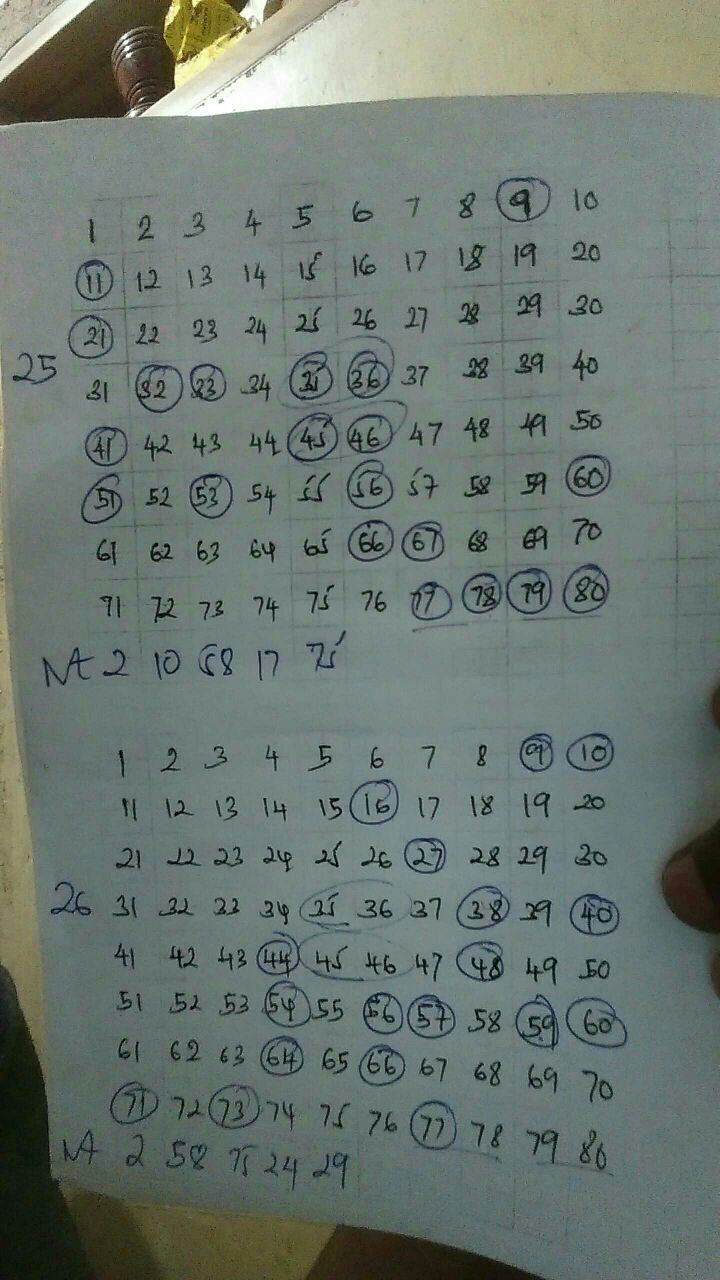 1 2 3 4 5 6 7 8 9 10
11 12 13 14 15 16 17 18 19 20
21 22 23 24 25 26 27 28 29 30
25
31 32 33 34 35 36 37 38 39 40
41 42 43 44 45 46 47 48 49 50
51 52 53 54 55 56 57 58 59 60
61 62 63 64 65 66 67 68 69 70
71 72 73 74 75 76 77 78 79 80
Nt 2 10 58 17 75
1 2 3 4 5 6 7 8 9 10
11 12 13 14 15 16 17 18 19 20
21 22 23 24 25 26 27 28 29 30
26
31 32 33 34 35 36 37 38 39 40
41 42 43 44 45 46 47 48 49 50
51 52 53 54 55 56 57 58 59 60
61 62 63 64 65 66 67 68 69 70
71 72 73 74 75 76 77 78 79 80
Nt 2 58 75 24 29